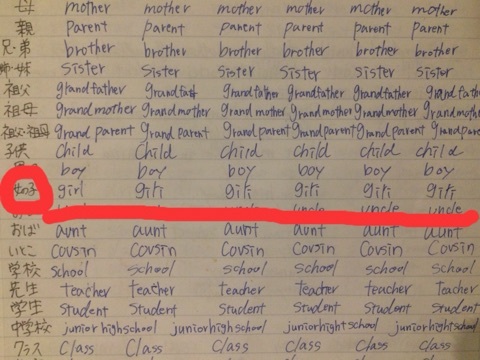 母 mother mother mother mother mother mother
親 parent parent parent parent parent parent
兄・弟 brother brother brother brother brother brother
姉・妹 sister sister sister sister sister sister
祖父 grandfather grandfather grandfather grandfather grandfath
祖母 grandmother grandmother grandmother grandmother grandmother grandmothe
祖父・祖母 grand parent grand parent grand parent grand parent grand parent grand pare
子供 child child child child child child
boy boy boy boy boy boy
女の子 girl
uncle uncle uncle
おば aunt aunt aunt aunt aunt aunt
いとこ cousin cousin cousin cousin cousin cousin
学校 school school school school school school
先生 teacher teacher teacher teacher teacher teacher
学生 student student student student student student
中学校 junior high school junior high school junior high school junior high school
クラス class class class class class class